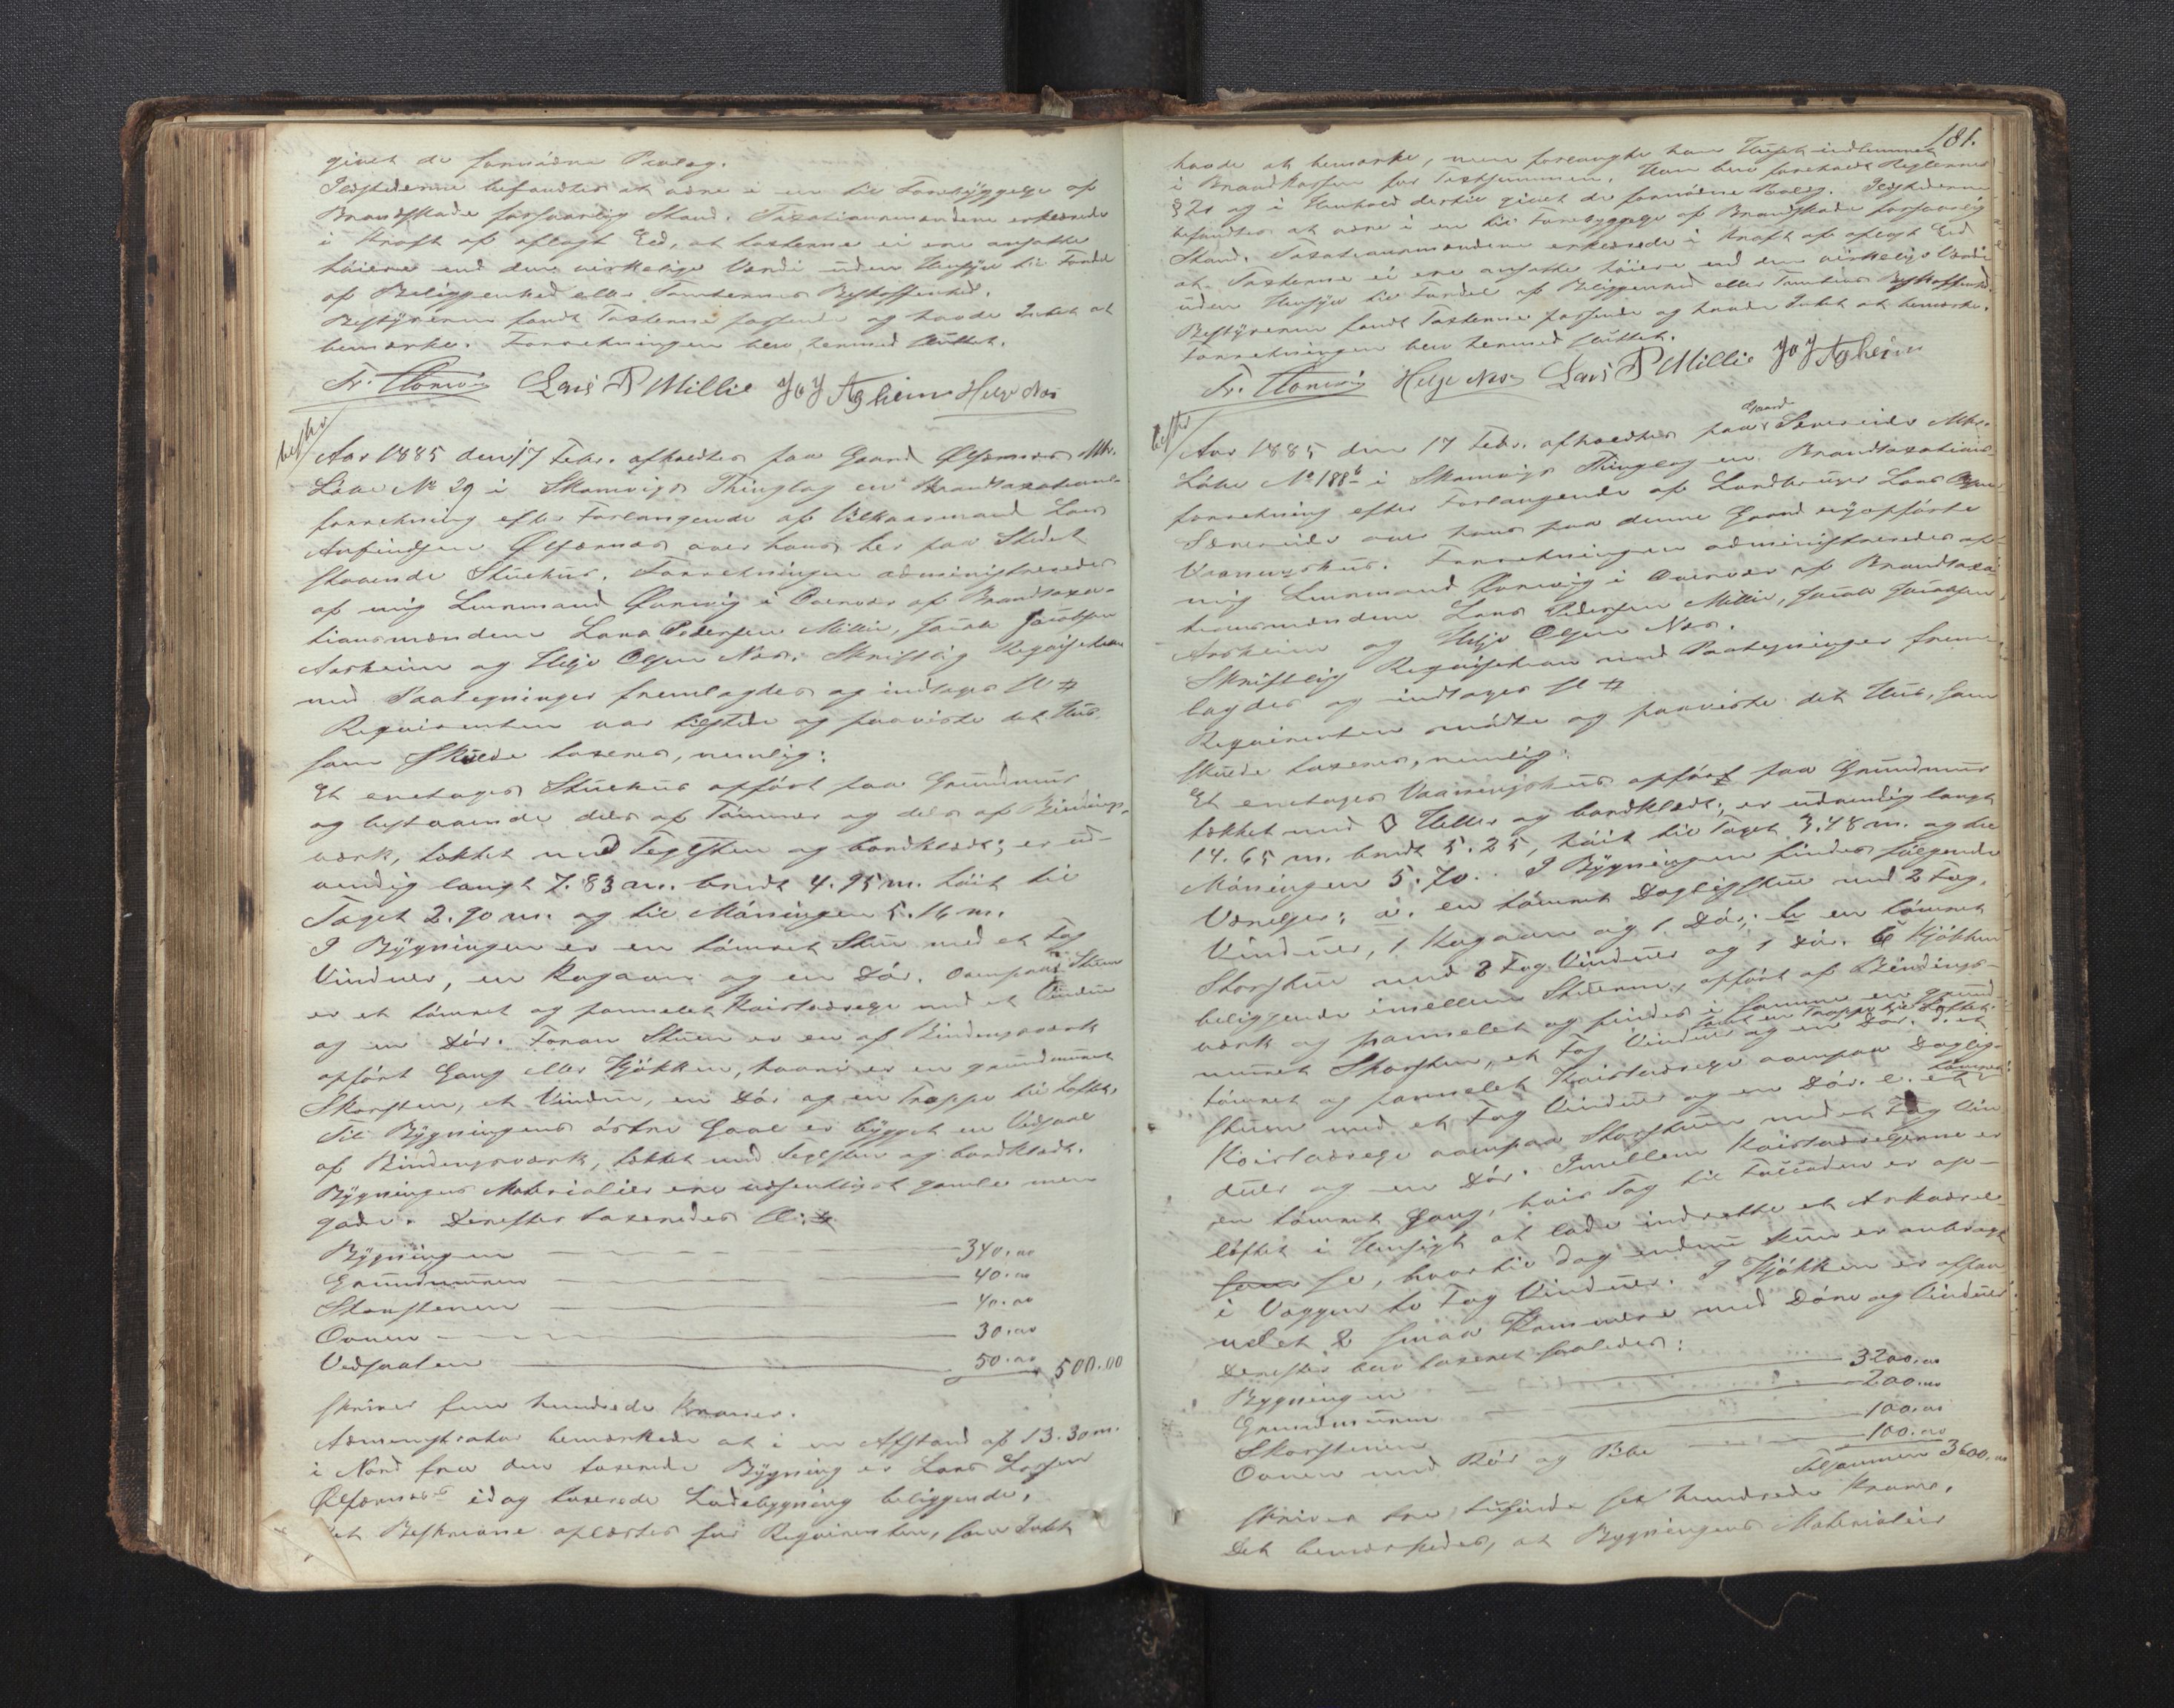 givet de fornødne Paalæg.
Ildstederne befandtes at være i en til Forebyggelse af
Brandskade forsvarlig Stand. Taxationsmændene erklærede
i Kraft af aflagt Eed, at taxterne ei ere ansatte
høiere end den virkelige Værdi uden Hensyn til Fordel
af Beliggenhed eller Tomternes Beskaffenhed.
Bestyreren fandt Taxterne passende og havde Intet at
bemærke. Forretningen blev hermed sluttet.
Lars P Millie J J Aaheim Helge Næs
Aar 1885 den 17 Febr. afholdtes paa Gaard Ølfernæs Mtr.
Løbe No 29 i Skonevigs Thinglag en Brandtaxations-
forretning efter Forlangende af Vilkaarsmand Lars
Anfindsen Ølfernæs over hans her paa Stedet
staaende Stuehus. Forretningen administreredes
af mig Lensmand i Overvær af Brandtaxa-
tionsmændene Lars Pedersen Millie, Jacob Jacobsen
Aaheim og Helje Olsen Næs. Skriftlig Reqvisition
med Paategninger fremlagdes og indtages #
Reqvirenten var tilstede og paaviste det Hus
som skulde taxeres, nemlig:
Et enetages Stuehus opført paa Grundmur
og bestaaende dels af Tømmer og dels af Bindings-
værk, tækket med Teglsten og bordklædt; er ud-
vendig langt 7.83 m. bredt 4.95 m. høit til
Taget 2.90 m. og til Møningen 5.16 m.
I Bygningen er en tømret Stue med et Fag
Vinduer, en Kogeovn og en Dør. Ovenpaa Stuen
er et tømret og pannelet Kvistværelse med et Vindue
og en Dør. Foran Stuen er en af Bindingsværk
opført Gang eller Kjøkken, hvori er en grundmuret
Skorsten, et Vindue, en Dør og en Trappe til Loftet.
Til Bygningens østre Gavl er bygget en Vedsval
af Bindingsværk, tækket med Teglsten og bordklædt.
Bygningens Materialier ere væsentligst gamle men
gode. Derefter taxeredes #
Bygningen 340.00
Grundmuren 40.00
Skorstenen 40.00
Ovnen 30.00
Vedsvalen 50.00 500.00
skriver fem hundrede Kroner.
Administrator bemærkede at i en Afstand af 13.30 m.
i Nord fra den taxerede Bygning er Lars Larsen
Ølfernæs idag taxerede Ladebygning beliggende.
Det Beskrevne oplæstes for Reqvirenten, som Intet
181.
havde at bemærke, men forlangte han Huset indlemmet
i Brandkassen for Taxtsummen. Han blev foreholdt Reglernes
§ 20 og i Henhold dertil givet de fornødne Paalæg. Ildstederne
befandtes at være i en til Forebyggelse af Brandskade forsvarlig
Stand. Taxationsmændene erklærede i Kraft af aflagt Eed
at Taxterne ei ere ansatte høiere end den virkelige Værdi
uden Hensyn til Fordel af Beliggenhed eller Tomtens Beskaffenhed.
Bestyreren fandt Taxterne passende og havde Intet at bemærke.
Forretningen blev hermed sluttet.
Helge Næs Lars P Millie J J Aaheim
Aar 1885 den 17 Febr. afholdtes paa Gaard Sævereide Mtr.
Løbe No 188b i Skonevigs Thinglag en Brandtaxations-
forretning efter Forlangende af Landbruger Lars
Sævereide over hans paa denne Gaard nyopførte
Vaaningshus. Forretningen administreredes af
mig Lensmand i Overvær af Brandtaxa-
tionsmændene Lars Pedersen Millie, Jacob Jacobsen
Aaheim og Helje Olsen Næs.
Skriftlig Reqvisition med Paategninger frem-
lagdes og indtages #
Reqvirenten mødte og paaviste det Hus, som
skulde taxeres, nemlig:
Et enetages Vaaningshus opført paa Grundmur
tækket med Heller og bordklædt; er udvendig langt
14.65 m. bredt 5.25, høit til Taget 3.48 m. og til
Møningen 5.70. I Bygningen findes følgende
Værelser: a. en tømret Dagligstue med 2 Fag
Vinduer, 1 Kogeovn og 1 Dør; b en tømret
Storstue med 3 Fag Vinduer og 1 Dør. c Kjøkken
beliggende imellem Stuerne, opført af Bindings-
værk og pannelet og findes i samme en grund-
muret Skorsten, et Fag Vinduer og en Dør. samt en Trappe til Loftet. d. et
tømret og pannelet Kvistværelse ovenpaa Daglig-
stuen med et Fag Vinduer og en Dør. e. et tømret
Kvistværelse ovenpaa Storstuen med et Fag Vin-
duer og en Dør. Imellem Kvistværelserne er
en tømret Gang, hvis Tag til Facaden er op-
løftet i Hensigt at lade indrette et Arkværel-
se, hvortil idag endnu kun er anbragt
i Væggen to Fag Vinduer. I Kjøkken er
2 smaa Kammere med Døre og Vinduer.
Derefter blev taxeret saaledes:
Bygningen 3200.00
Grundmuren 200.00
Skorstenen 100.00
Ovnen med Rør og Pibe 100.00
Tilsammen 3600.00
skriver tre tusinde sex hundrede Kroner.
Det bemærkedes, at Bygningens Materialier